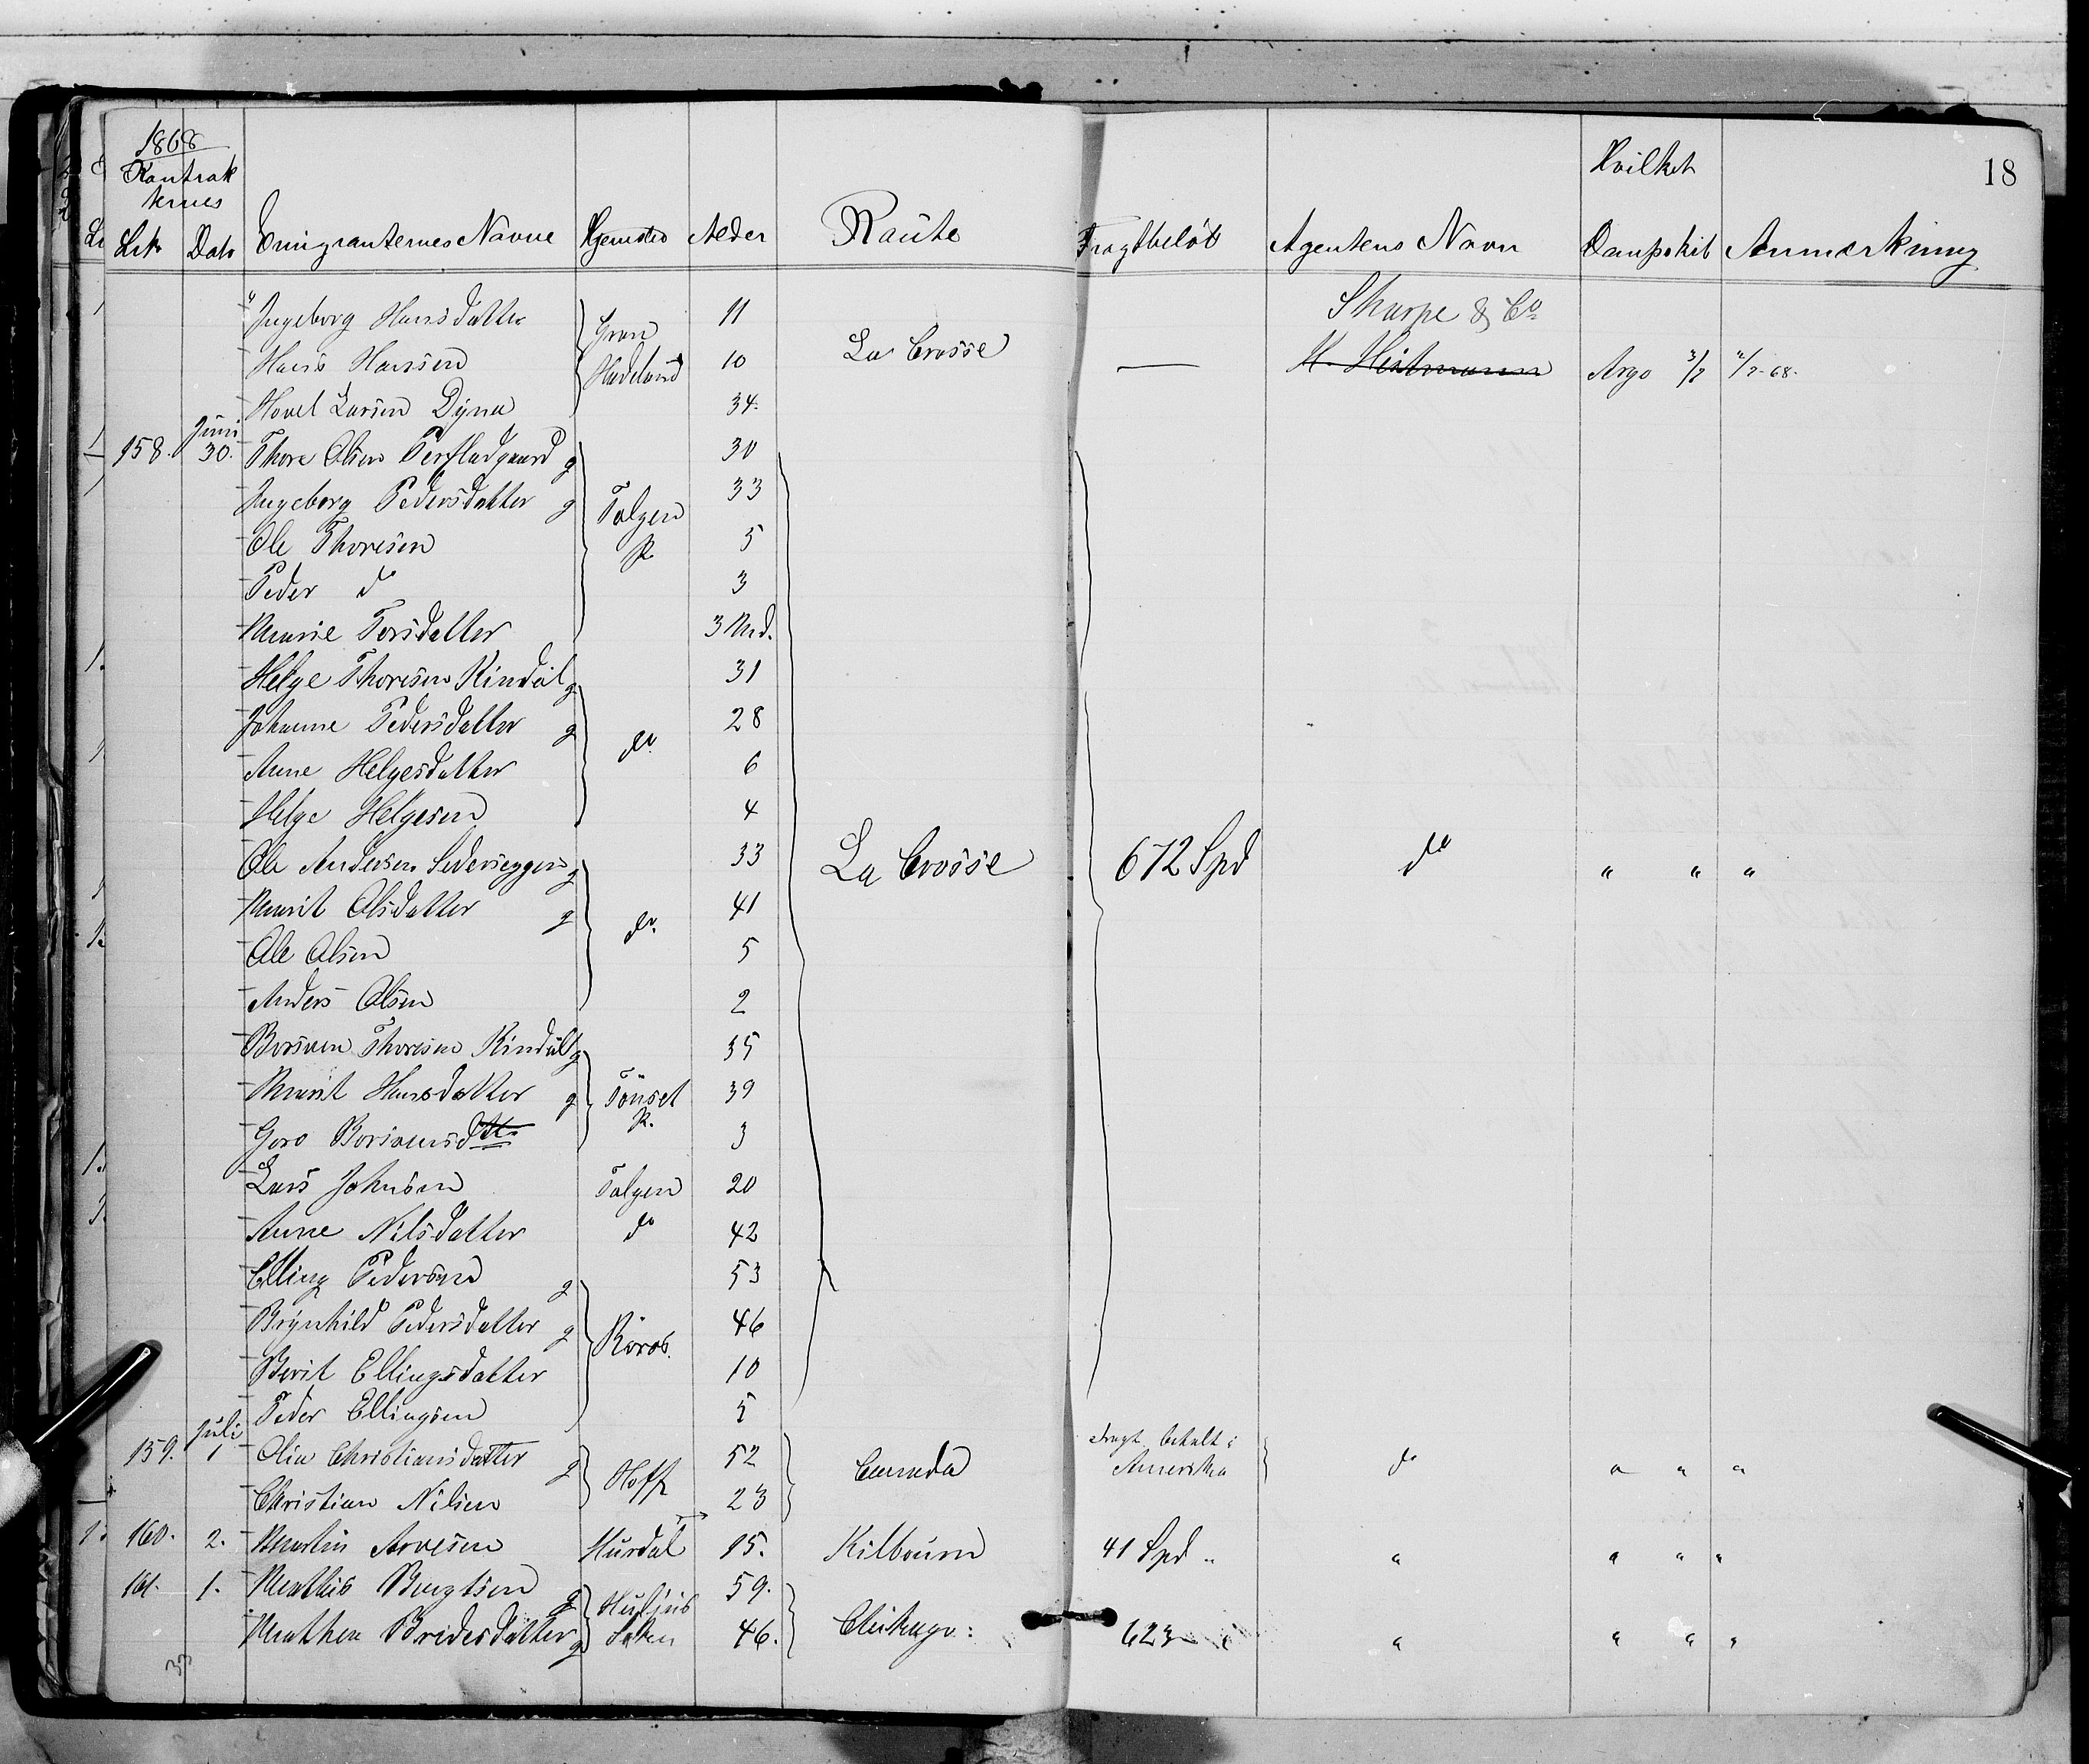 1868
Kontrak
ternes
Hvilket
18
Lb. Dato Emigranternes Navne Hjemsted Alder Raute Fragtbeløb Agentens Navn Dampskib Anmærkning
Ingeborg Hansdatter Gran 11 Sharpe & Co
Hans Hansen Hadeland 10 La Crosse — H. Heitmann Argo 3/7 4/7-68.
Hovel Larsen Dyna 34.
Juni
158. 30. Thore Olsen g 30
Ingeborg Pedersdatter g Tolgen 33
Ole Thoresen P. 5
Peder do 3
Marie Torsdatter 3 Md.
Helge Thoresen Rindal g 31
Johanne Pedersdatter g do. 28
Anne Helgesdatter 6
Helge Helgesen 4
Ole Andersen g 33 La Crosse 672 Spd do " " "
Marit Olsdatter g do. 41
Ole Olsen 5
Anders Olsen 2
Thoresen Rindal g 35
Marit Hansdatter g Tönset 39
Goro P. 3
Lars Johnsen Tolgen 20
Anne Nilsdatter do 42
Elling Pedersen g 53
Brynhild Pedersdatter g Röros. 46
Berit Ellingsdatter 10
Peder Ellingsen 5
Juli
159. 1 Olia Christiansdatter g Hoff 52 Canada Fragt betalt i Amerika do " " "
Christian Nilsen 23
160. 2. Martin Arvesen Hurdal 15. Kilbourn 41 Spd " " " " "
161. 1. Mathis Bengtsen g 59.
Mathea g 46. Chikago: 623 " " " "
33